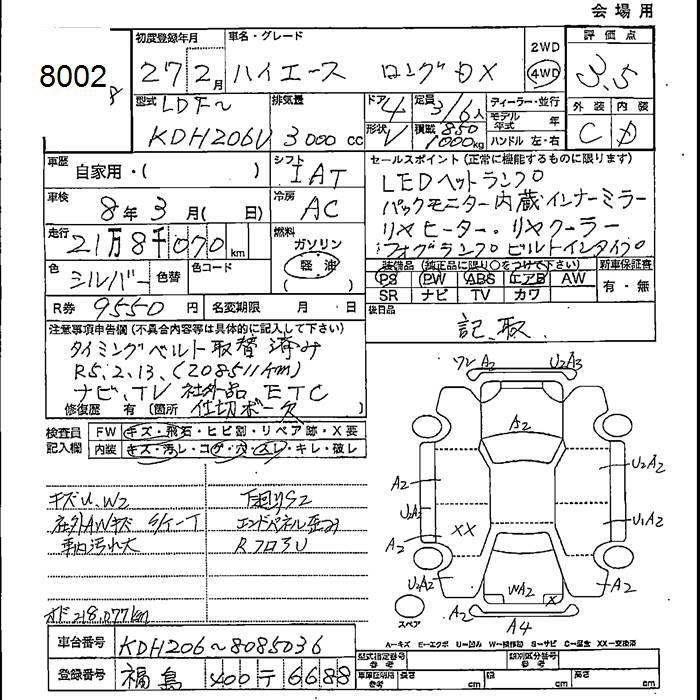 会場用
8002
初度登録年月
27 2月
車名・グレード
ハイエース ロングDX
2WD
4WD
評価点
3.5
型式
LDF~
KDH206V
排気量
3000 cc
ドア
4
形状
V
定員
3/6人
積載
850
1000kg
ディーラー・並行
モデル年式 年
ハンドル 左・右
外装
C
内装
D
車歴
自家用・( )
シフト
IAT
セールスポイント(正常に機能するものに限ります)
LEDヘットランプ
バックモニター内蔵インナーミラー
リヤヒーター・リヤクーラー
フォグランプ ビルトインタイプ
車検
8年3月( 日)
冷房
AC
走行
21万8千070km
燃料
ガソリン
軽油
( )
色
シルバー
色替
色コード
装備品(純正品に限り○をつけて下さい)
PS PW ABS エアB AW
SR ナビ TV カワ
新車保証書
有・無
R券
9550円
名変期限 月 日
後日品
記.取
注意事項申告欄(不具合内容等は具体的に記入して下さい)
タイミングベルト取替済み
R5.2.13.(208511km)
ナビ、TV 社外品 ETC
修復歴 有(箇所 仕切ボード)
検査員記入欄
FW
キズ・飛石・ヒビ割・リペア跡・X要
内装
キズ・汚レ・コゲ・穴・スレ・キレ・破レ
キズU.W2
下廻りS2
社外AWキズ
エンドパネル歪み
車内汚れ大
RフロアU
オド218,077km
ワレ A2
U2A3
A2
A2
U2A2
U2A2
A2
XX
U1A2
U2A2
WA2
X
A2
A2
A4
スペア
A—キズ E—エクボ U—凹み W—補修跡 S—サビ C—腐食 XX—交換済
車台番号
KDH206~8085036
登録番号
福島 400 テ 6688
型式指定番号
参考
類別区分番号
参考
車庫証明用
参考
長さ cm
幅 cm
高さ cm